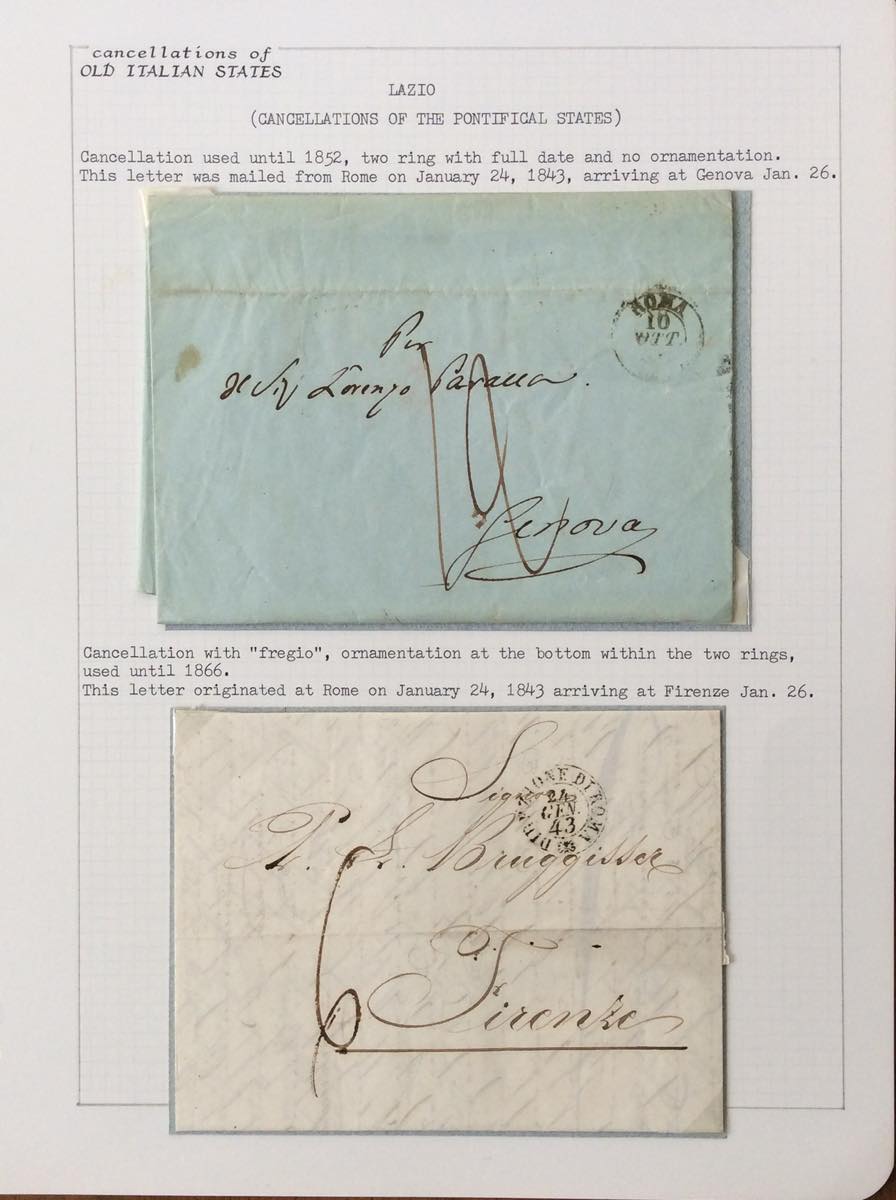 cancellations of
OLD ITALIAN STATES
LAZIO
(CANCELLATIONS OF THE PONTIFICAL STATES)
Cancellation used until 1852, two ring with full date and no ornamentation.
This letter was mailed from Rome on January 24, 1843, arriving at Genova Jan. 26.
ROMA
10
OTT.
Per
Lorenzo
Genova
Cancellation with "fregio", ornamentation at the bottom within the two rings,
used until 1866.
This letter originated at Rome on January 24, 1843 arriving at Firenze Jan. 26.
DIREZIONE DI ROMA
24
GEN.
43
Bruggisser
6
Firenze